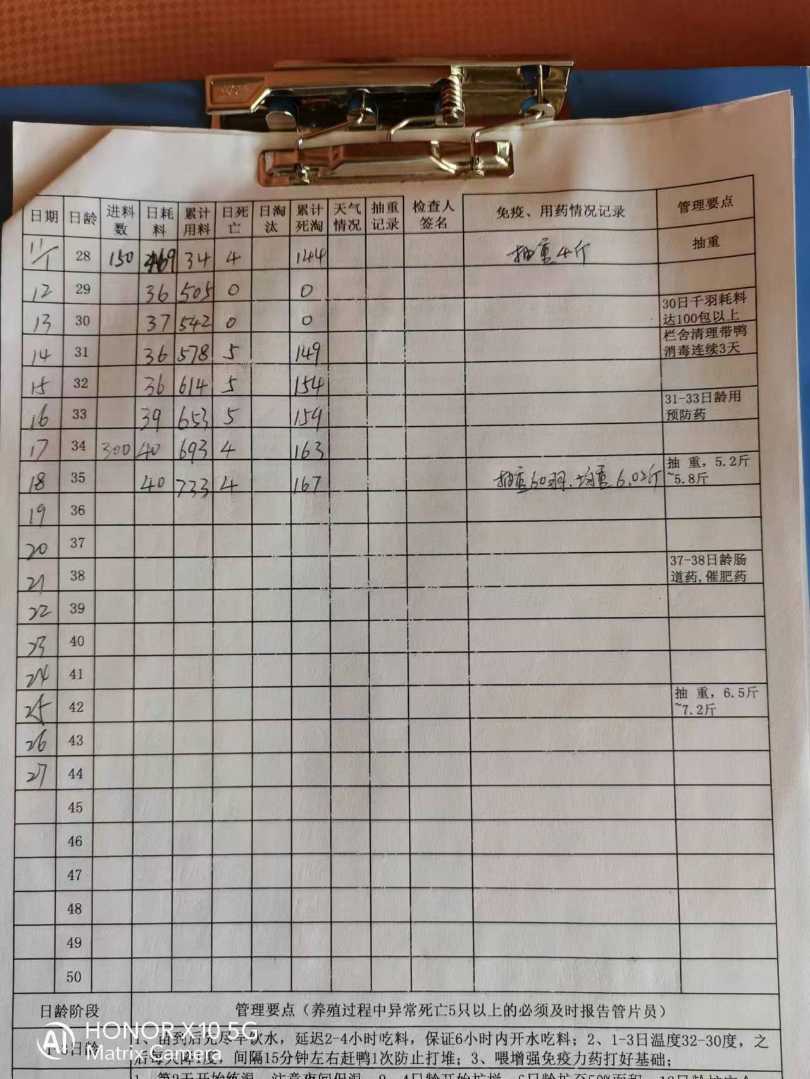 日期 日龄 进料数 日耗料 累计用料 日死亡 日淘汰 累计死淘 天气情况 抽重记录 检查人签名 免疫、用药情况记录 管理要点
11/ 28 150 469 34 4 144 抽重4斤 抽重
12 29 36 505 0 0
13 30 37 542 0 0 30日千羽耗料达100包以上
14 31 36 578 5 149 栏舍清理带鸭消毒连续3天
15 32 36 614 5 154
16 33 39 653 5 159 31-33日龄用预防药
17 34 300 40 693 4 163
18 35 40 733 4 167 抽重60羽.均重6.02斤 抽 重，5.2斤~5.8斤
19 36
20 37
21 38 37-38日龄肠道药,催肥药
22 39
23 40
24 41
25 42 抽 重，6.5斤~7.2斤
26 43
27 44
45
46
47
48
49
50
日龄阶段 管理要点（养殖过程中异常死亡5只以上的必须及时报告管片员）
日龄 1、苗到后先尽早饮水，延迟2-4小时吃料，保证6小时内开水吃料；2、1-3日温度32-30度，之
后每天降1度，间隔15分钟左右赶鸭1次防止打堆；3、喂增强免疫力药打好基础；
HONOR X10 5G
Matrix Camera